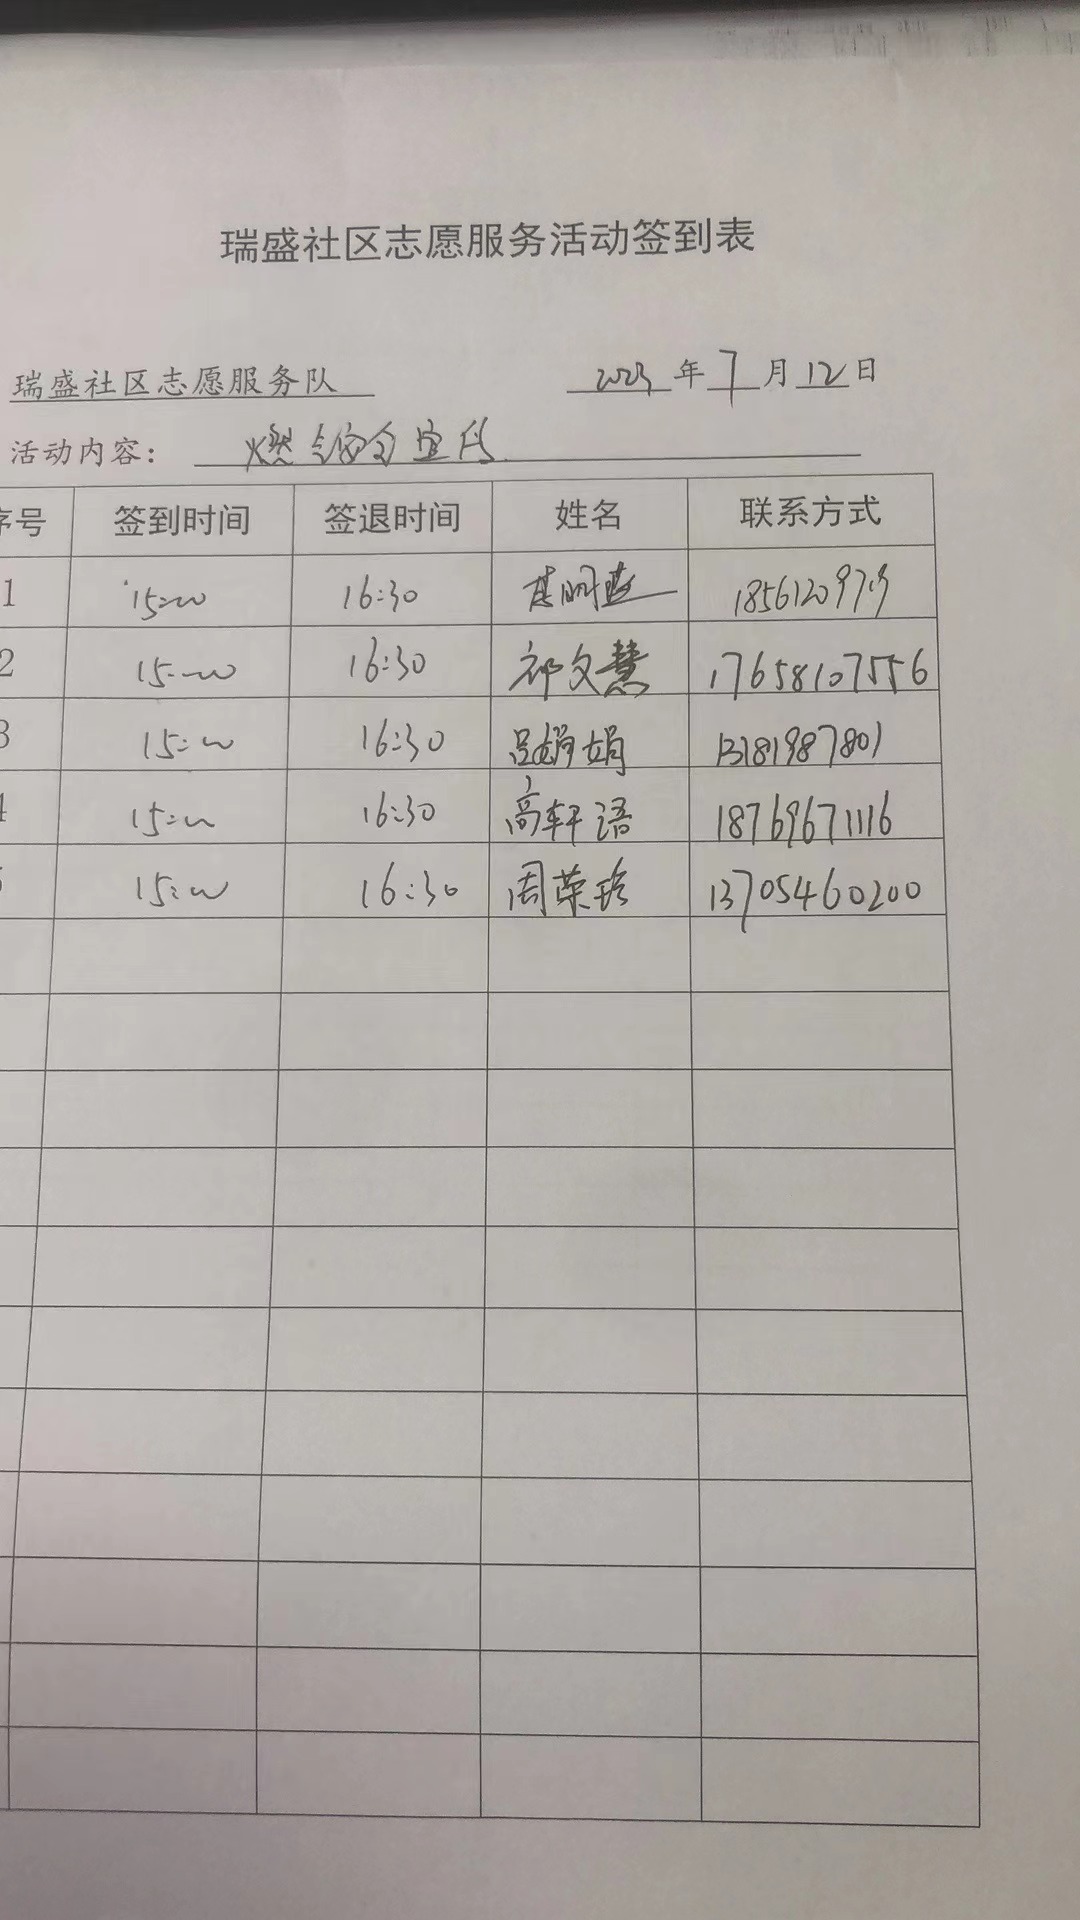 瑞盛社区志愿服务活动签到表
瑞盛社区志愿服务队 2023年7月12日
活动内容: 燃气安全宣传
序号 签到时间 签退时间 姓名 联系方式
1 15:00 16:30
2 15:00 16:30 祁文慧 17658107556
3 15:00 16:30 吕娟娟 13181987801
4 15:00 16:30 高轩语 18769671116
15:00 16:30 周荣珍 13705460200